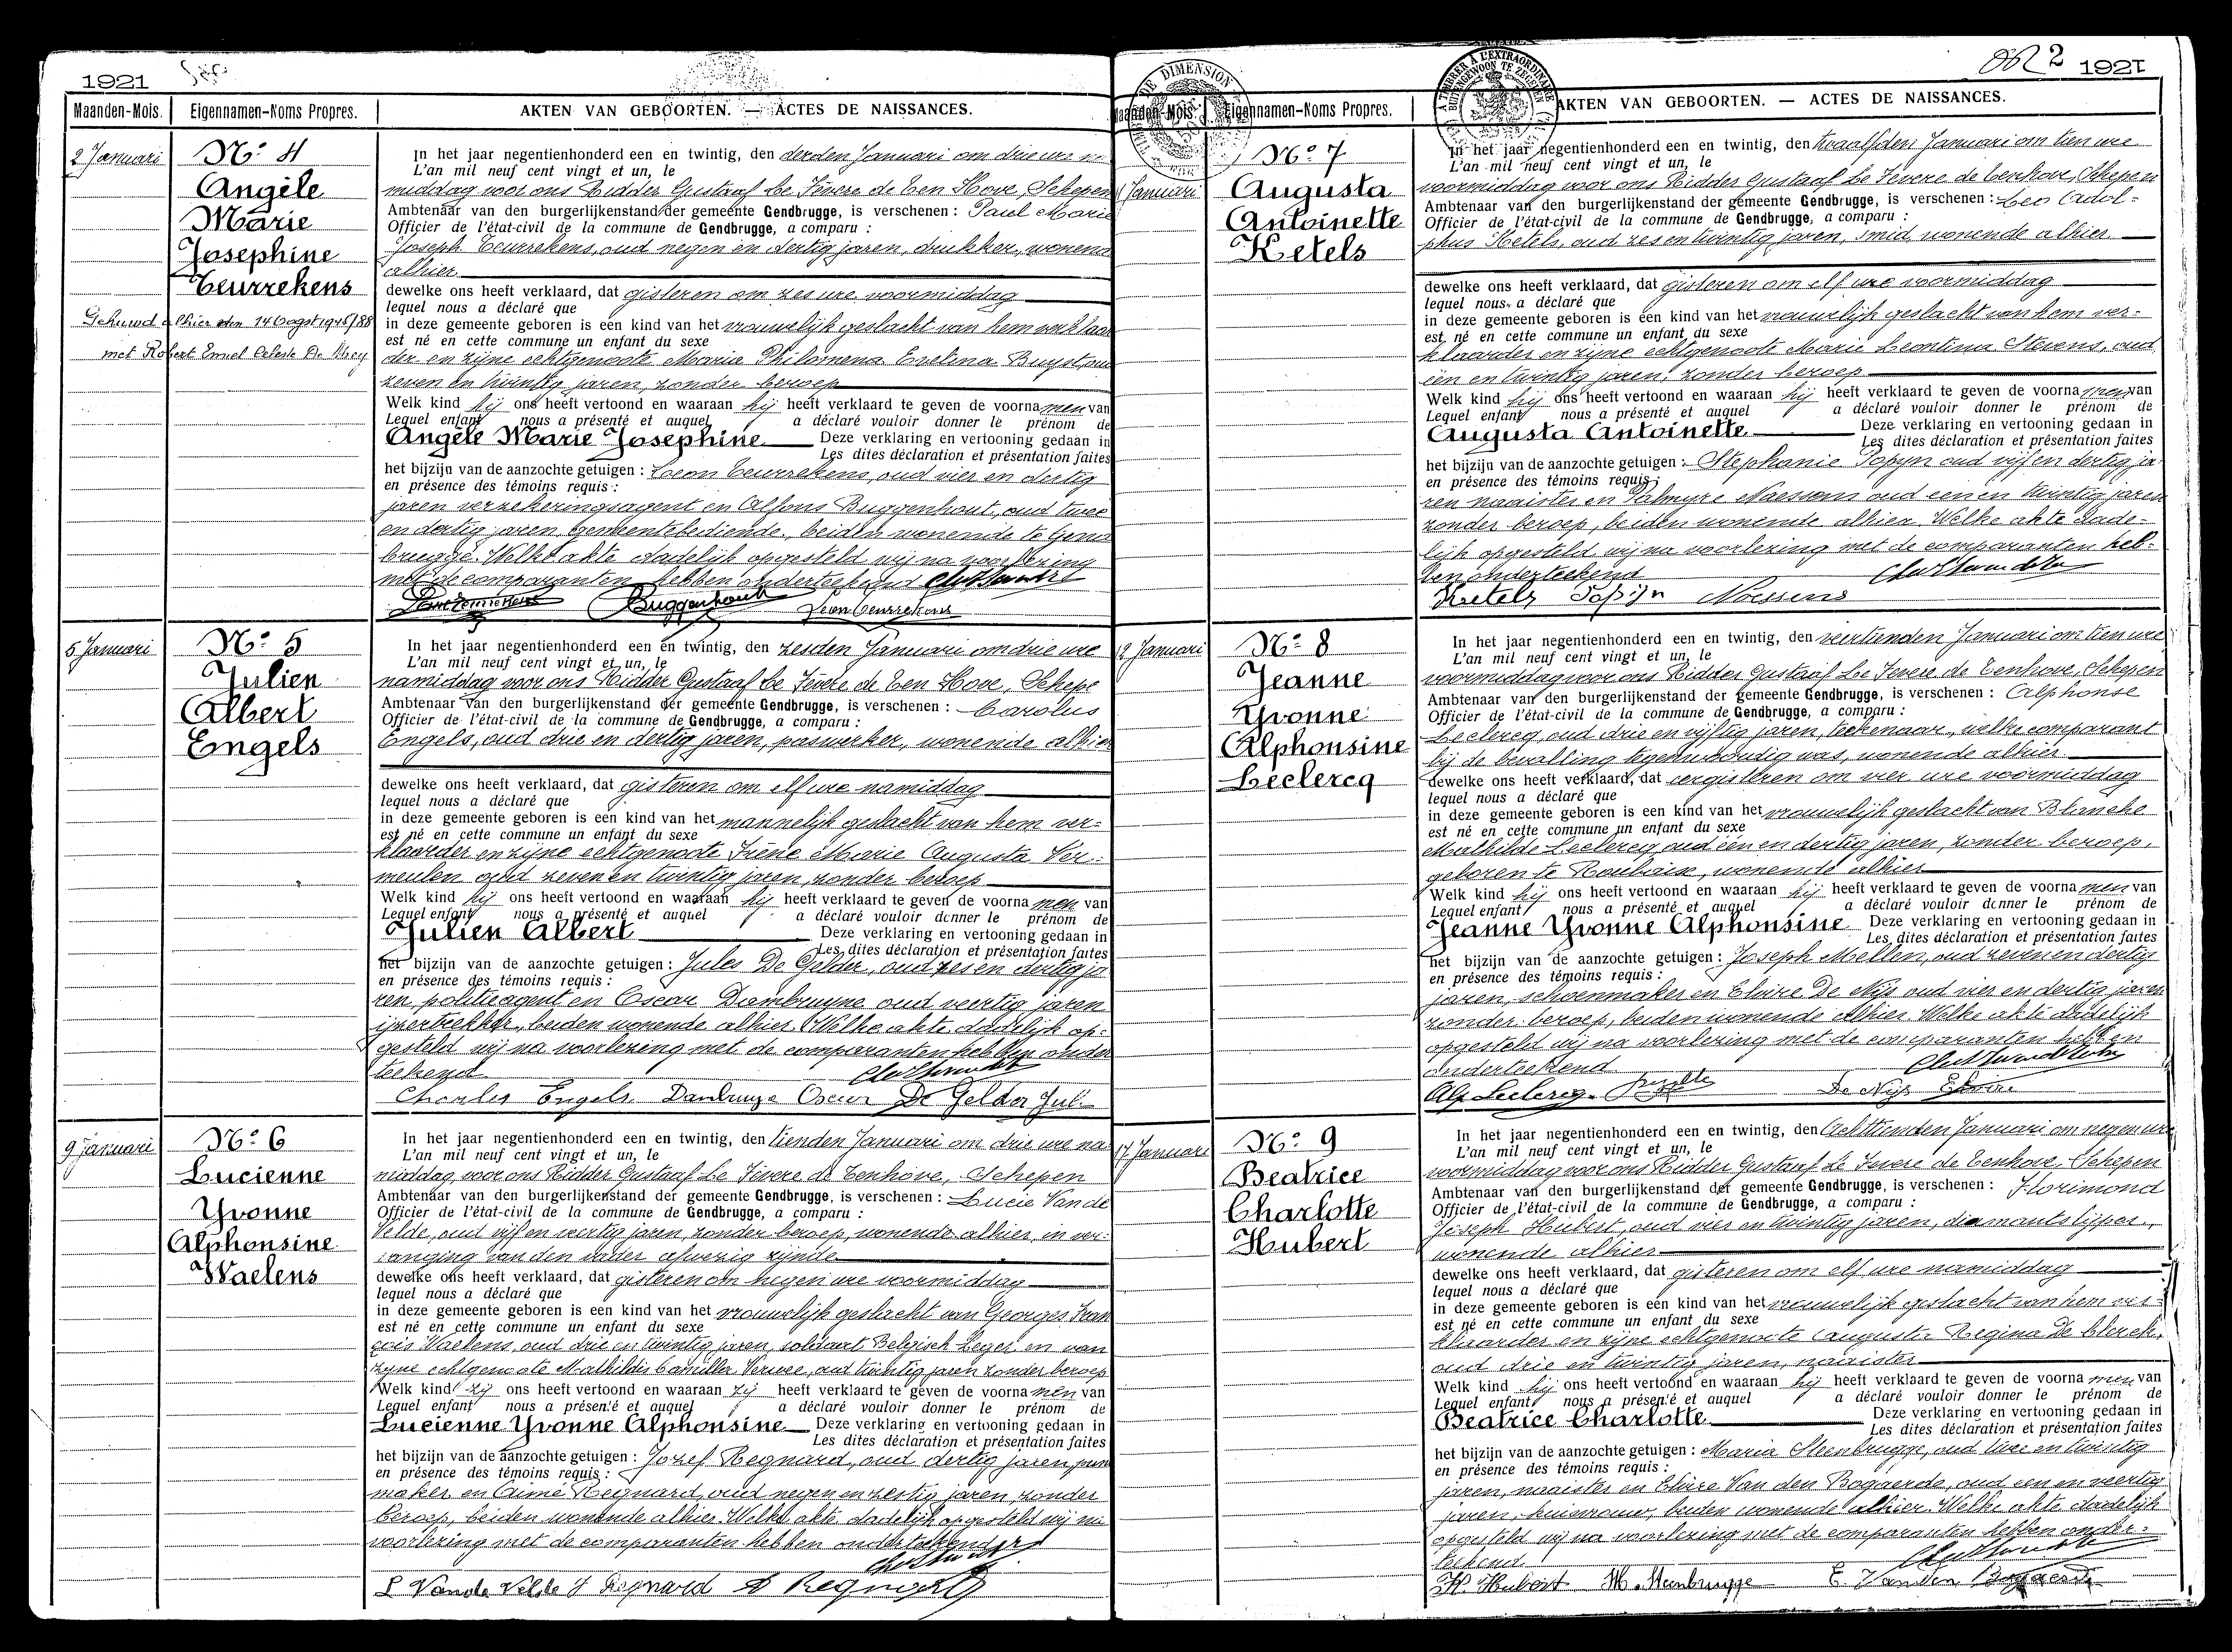 1921
Maanden-Mois. Eigennamen-Noms Propres. AKTEN VAN GEBOORTEN. — ACTES DE NAISSANCES.
2 Januari
Nº 4
Angèle
Marie
Josephine
Teurrekens
Gehuwd alhier den 14 Oogst 1945/88
met Robert Emiel Celeste De
In het jaar negentienhonderd een en twintig, den derden Januari om drie ure na
L'an mil neuf cent vingt et un, le
middag voor ons Ridder Gustaaf Le Fèvere de Ten Hove, Schepen
Ambtenaar van den burgerlijkenstand der gemeente Gendbrugge, is verschenen : Paul Marie
Officier de l'état-civil de la commune de Gendbrugge, a comparu :
Joseph Teurrekens, oud negen en dertig jaren, drukker, wonend
alhier
dewelke ons heeft verklaard, dat gisteren om zes ure voormiddag
lequel nous a déclaré que
in deze gemeente geboren is een kind van het vrouwelijk geslacht van hem verklaar
est né en cette commune un enfant du sexe
der en zijne echtgenoote Maria Philomena Evelina Buyst, oud
zeven en twintig jaren, zonder beroep
Welk kind hij ons heeft vertoond en waaraan hij heeft verklaard te geven de voornamen van
Lequel enfant nous a présenté et auquel a déclaré vouloir donner le prénom de
Angèle Marie Josephine Deze verklaring en vertooning gedaan in
Les dites déclaration et présentation faites
het bijzijn van de aanzochte getuigen : Leon Teurrekens, oud vier en dertig
en présence des témoins requis :
jaren verzekeringsagent en Alfons Buggenhout, oud twee
en dertig jaren, gemeentebediende, beiden wonende te Gend
brugge. Welke akte dadelijk opgesteld wij na voorlezing
met de comparanten hebben onderteekend
Buggenhout Leon Teurrekens
5 Januari
Nº 5
Julien
Albert
Engels
In het jaar negentienhonderd een en twintig, den zesden Januari om drie ure
L'an mil neuf cent vingt et un, le
namiddag voor ons Ridder Gustaaf Le Fèvere de Ten Hove, Schepe
Ambtenaar van den burgerlijkenstand der gemeente Gendbrugge, is verschenen : Carolus
Officier de l'état-civil de la commune de Gendbrugge, a comparu :
Engels, oud drie en dertig jaren, paswerker, wonende alhier
dewelke ons heeft verklaard, dat gisteren om elf ure namiddag
lequel nous a déclaré que
in deze gemeente geboren is een kind van het mannelijk geslacht van hem ver-
est né en cette commune un enfant du sexe
klaarder en zijne echtgenoote Irène Marie Augusta Ver-
meulen oud zeven en twintig jaren, zonder beroep
Welk kind hij ons heeft vertoond en waaraan hij heeft verklaard te geven de voornamen van
Lequel enfant nous a présenté et auquel a déclaré vouloir donner le prénom de
Julien Albert Deze verklaring en vertooning gedaan in
Les dites déclaration et présentation faites
het bijzijn van de aanzochte getuigen : Jules De Gelder, oud zes en dertig ja
en présence des témoins requis :
ren, politieagent en Oscar Dambruyne oud veertig jaren
ijzertrekker, beiden wonende alhier. Welke akte dadelijk op-
gesteld wij na voorlezing met de comparanten hebben onder
teekend
Charles Engels. Dambruyne Oscar De Gelder Jul.
9 Januari
Nº 6
Lucienne
Yvonne
Alphonsine
Waelens
In het jaar negentienhonderd een en twintig, den tienden Januari om drie ure na
L'an mil neuf cent vingt et un, le
middag, voor ons Ridder Gustaaf Le Fèvere de Tenhove, Schepen
Ambtenaar van den burgerlijkenstand der gemeente Gendbrugge, is verschenen : Lucie Vande
Officier de l'état-civil de la commune de Gendbrugge, a comparu :
Velde, oud vijf en veertig jaren, zonder beroep, wonende alhier, in ver-
vanging van den vader afwezig zijnde
dewelke ons heeft verklaard, dat gisteren om negen ure voormiddag
lequel nous a déclaré que
in deze gemeente geboren is een kind van het vrouwelijk geslacht van Georges Fran
est né en cette commune un enfant du sexe
çois Waelens, oud drie en twintig jaren, soldaat Belgisch Leger, en van
zijne echtgenoote Mathildis Camilla Verwee, oud twintig jaren zonder beroep
Welk kind zij ons heeft vertoond en waaraan zij heeft verklaard te geven de voornamen van
Lequel enfant nous a présenté et auquel a déclaré vouloir donner le prénom de
Lucienne Yvonne Alphonsine Deze verklaring en vertooning gedaan in
Les dites déclaration et présentation faites
het bijzijn van de aanzochte getuigen : Jozef Regnard, oud dertig jaren,
en présence des témoins requis :
maker en Aimé Regnard, oud negen en zestig jaren, zonder
beroep, beiden wonende alhier. Welke akte dadelijk opgesteld wij na
voorlezing met de comparanten hebben onderteekend
L Vande Velde J Regnard A Regnard
2 1921
Maanden-Mois. Eigennamen-Noms Propres. AKTEN VAN GEBOORTEN. — ACTES DE NAISSANCES.
DE DIMENSION
A TIMBRER A L'EXTRAORDINAIRE
BUITENGEWOON TE ZEGELEN
11 Januari
Nº 7
Augusta
Antoinette
Ketels
In het jaar negentienhonderd een en twintig, den twaalfden Januari om tien ure
L'an mil neuf cent vingt et un, le
voormiddag voor ons Ridder Gustaaf Le Fèvere de Tenhove, Schepen
Ambtenaar van den burgerlijkenstand der gemeente Gendbrugge, is verschenen : Leo Adol-
Officier de l'état-civil de la commune de Gendbrugge, a comparu :
phus Ketels, oud zes en twintig jaren, smid, wonende alhier
dewelke ons heeft verklaard, dat gisteren om elf ure voormiddag
lequel nous a déclaré que
in deze gemeente geboren is een kind van het vrouwelijk geslacht van hem ver-
est né en cette commune un enfant du sexe
klaarder en zijne echtgenoote Marie Leontina Stevens, oud
een en twintig jaren, zonder beroep
Welk kind hij ons heeft vertoond en waaraan hij heeft verklaard te geven de voornamen van
Lequel enfant nous a présenté et auquel a déclaré vouloir donner le prénom de
Augusta Antoinette Deze verklaring en vertooning gedaan in
Les dites déclaration et présentation faites
het bijzijn van de aanzochte getuigen : Stephanie Popijn oud vijf en dertig ja
en présence des témoins requis :
ren naaister en Palmyre Naessens oud een en twintig jaren
zonder beroep, beiden wonende alhier. Welke akte dade-
lijk opgesteld wij na voorlezing met de comparanten heb-
ben onderteekend
Ketels Popijn Naessens
12 Januari
Nº 8
Jeanne
Yvonne
Alphonsine
Leclercq
In het jaar negentienhonderd een en twintig, den veertienden Januari om tien ure
L'an mil neuf cent vingt et un, le
voormiddag voor ons Ridder Gustaaf Le Fèvere de Tenhove, Schepen
Ambtenaar van den burgerlijkenstand der gemeente Gendbrugge, is verschenen : Alphonse
Officier de l'état-civil de la commune de Gendbrugge, a comparu :
Leclercq, oud drie en vijftig jaren, teekenaar, welke comparant
bij de bevalling tegenwoordig was, wonende alhier
dewelke ons heeft verklaard, dat eergisteren om vier ure voormiddag
lequel nous a déclaré que
in deze gemeente geboren is een kind van het vrouwelijk geslacht van Blanche
est né en cette commune un enfant du sexe
Mathilde Leclercq oud één en dertig jaren, zonder beroep,
geboren te Roubaix, wonende alhier
Welk kind hij ons heeft vertoond en waaraan hij heeft verklaard te geven de voornamen van
Lequel enfant nous a présenté et auquel a déclaré vouloir donner le prénom de
Jeanne Yvonne Alphonsine Deze verklaring en vertooning gedaan in
Les dites déclaration et présentation faites
het bijzijn van de aanzochte getuigen : Joseph Mellen, oud zeven en dertig
en présence des témoins requis :
jaren, schoenmaker en Elvire De Nijs oud vier en dertig jaren
zonder beroep, beiden wonende alhier. Welke akte dadelijk
opgesteld wij na voorlezing met de comparanten hebben
onderteekend
Alp Leclercq. De Nijs Elvire
17 Januari
Nº 9
Beatrice
Charlotte
Hubert
In het jaar negentienhonderd een en twintig, den Achttienden Januari om negen ure
L'an mil neuf cent vingt et un, le
voormiddag voor ons Ridder Gustaaf Le Fèvere de Tenhove, Schepen
Ambtenaar van den burgerlijkenstand der gemeente Gendbrugge, is verschenen : Florimond
Officier de l'état-civil de la commune de Gendbrugge, a comparu :
Joseph Hubert, oud vier en twintig jaren, diamantslijper,
wonende alhier
dewelke ons heeft verklaard, dat gisteren om elf ure namiddag
lequel nous a déclaré que
in deze gemeente geboren is een kind van het vrouwelijk geslacht van hem ver-
est né en cette commune un enfant du sexe
klaarder en zijne echtgenoote Augusta Regina De Clerck,
oud drie en twintig jaren, naaister
Welk kind hij ons heeft vertoond en waaraan hij heeft verklaard te geven de voornamen van
Lequel enfant nous a présenté et auquel a déclaré vouloir donner le prénom de
Beatrice Charlotte Deze verklaring en vertooning gedaan in
Les dites déclaration et présentation faites
het bijzijn van de aanzochte getuigen : Maria Steenbrugge, oud twee en twintig
en présence des témoins requis :
jaren, naaister en Elvire Van den Bogaerde, oud een en veertig
jaren, huisvrouw, beiden wonende alhier. Welke akte dadelijk
opgesteld wij na voorlezing met de comparanten hebben onder-
teekend
Hubert M. Steenbrugge E. Van den Bogaerde